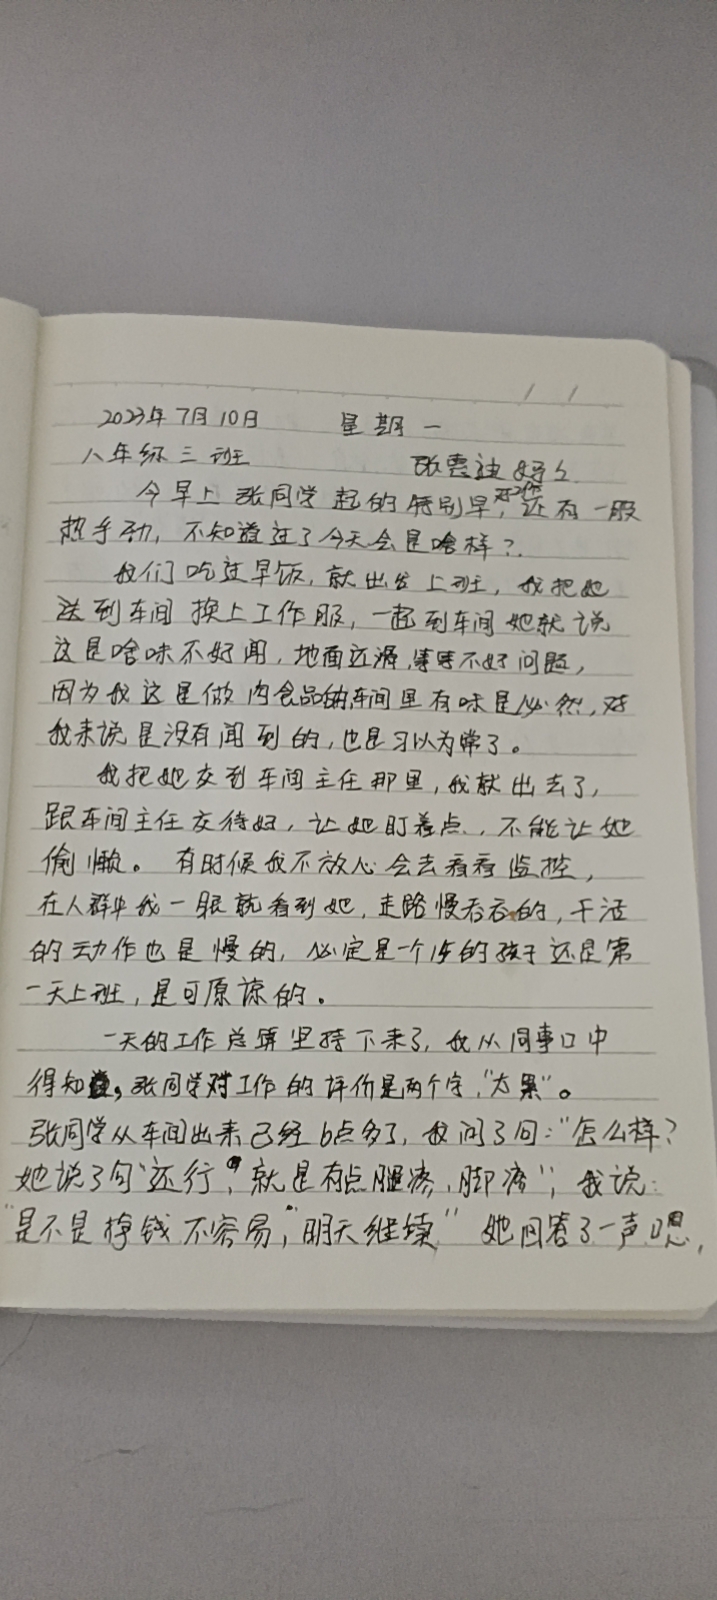 2023年7月10日 星期一
八年级三班 张雲迪妈妈
今早上张同学起的特别早,对工作还有一股
热乎劲,不知道过了今天会是啥样?
我们吃过早饭,就出发上班,我把她
送到车间换上工作服,一起到车间她就说
这是啥味不好闻,地面还滑,等等不好问题,
因为我这是做肉食品的车间里有味是必然,对
我来说是没有闻到的,也是习以为常了。
我把她交到车间主任那里,我就出去了,
跟车间主任交待好,让她盯着点,不能让她
偷懒。有时候我不放心会去看看监控,
在人群中我一眼就看到她,走路慢吞吞的,干活
的动作也是慢的,必定是一个15的孩子还是第
一天上班,是可原谅的。
一天的工作总算坚持下来了,我从同事口中
得知,张同学对工作的评价是两个字,“太累”。
张同学从车间出来已经6点多了,我问了句:“怎么样?
她说了句“还行,就是有点腿疼,脚疼”,我说:
“是不是挣钱不容易,“明天继续” 她回答了一声嗯,